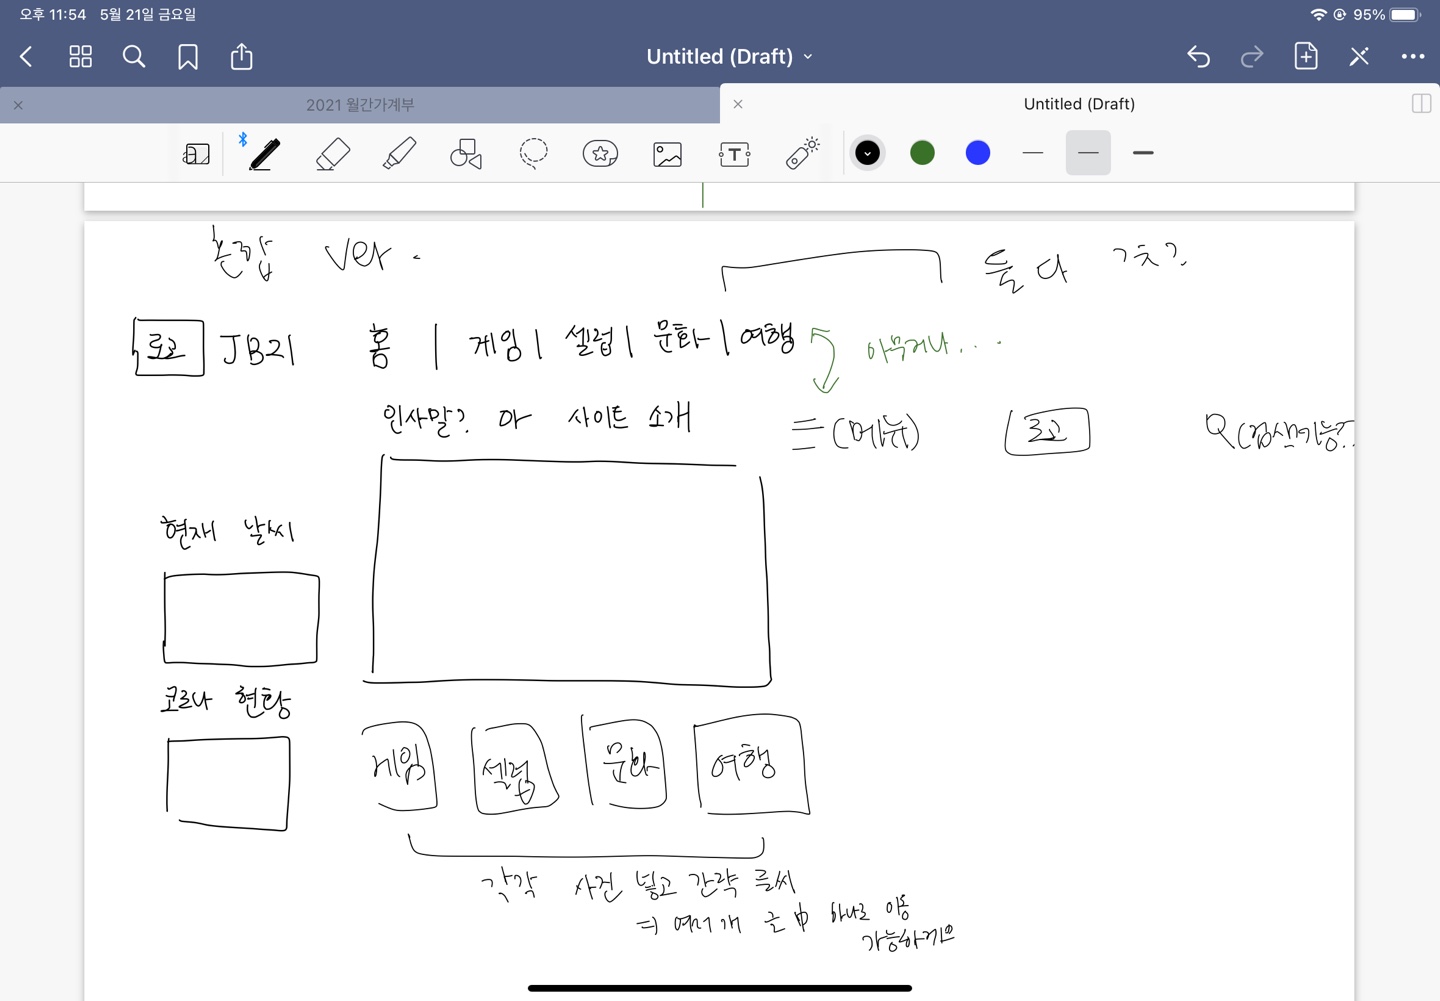 오후 11:54 5월 21일 금요일 95%
Untitled (Draft)
2021 월간가계부 Untitled (Draft)
혼합 ver.
둘 다
로고 JB21 홈 | 게임 | 셀럽 | 문화 | 여행
아무거나...
인사말? or 사이트 소개
(메뉴) 로고 (검색기능?
현재 날씨
코로나 현황
게임 셀럽 문화 여행
각각 사진 넣고 간략 글씨
⇒ 여러개 글 中 하나로 이동
가능하게끔